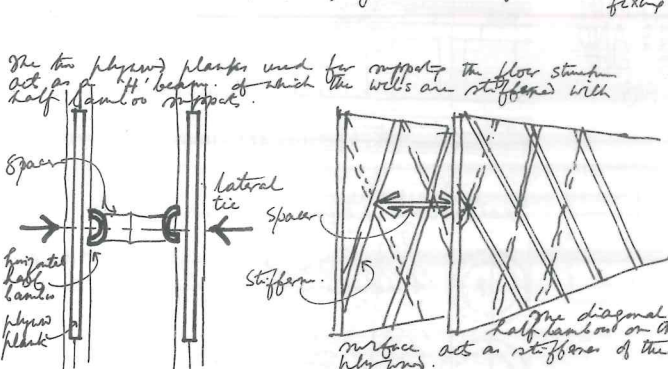 fixing
The two plywood planks used for supporting the floor structure
act as a 'H' beam. of which the webs are stiffened with
half bamboo support.
spacer
lateral
tie
spacer
horizontal
half
bamboo
stiffener.
plywd
plank
The diagonal
half bamboo on
surface acts as stiffeners of the
plywood.